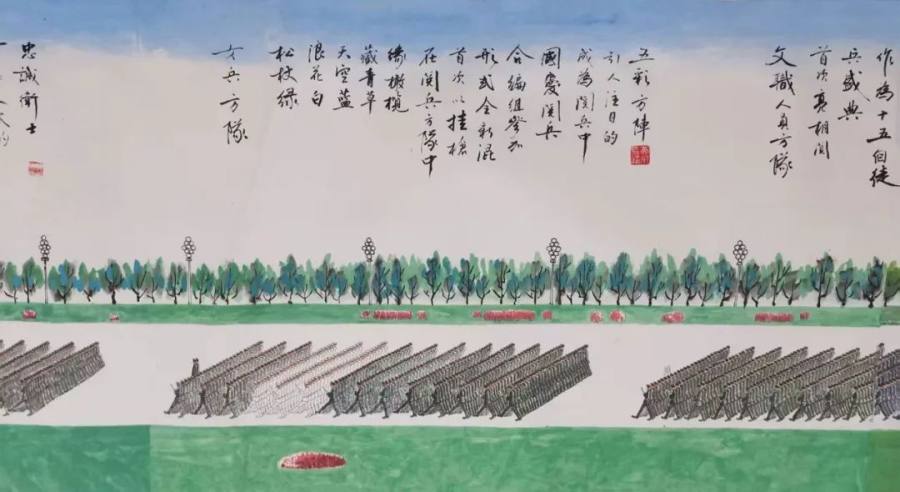 忠誠衛士
女兵方隊
松枝綠
浪花白
天空藍
藏青草
綠橄欖
在閱兵方隊中
首次以挂槍
形式全新混
合編組參加
國慶閱兵
成為閱兵中
引人注目的
五彩方陣
文職人員方隊
首次亮相閱
兵盛典
作為十五個徒